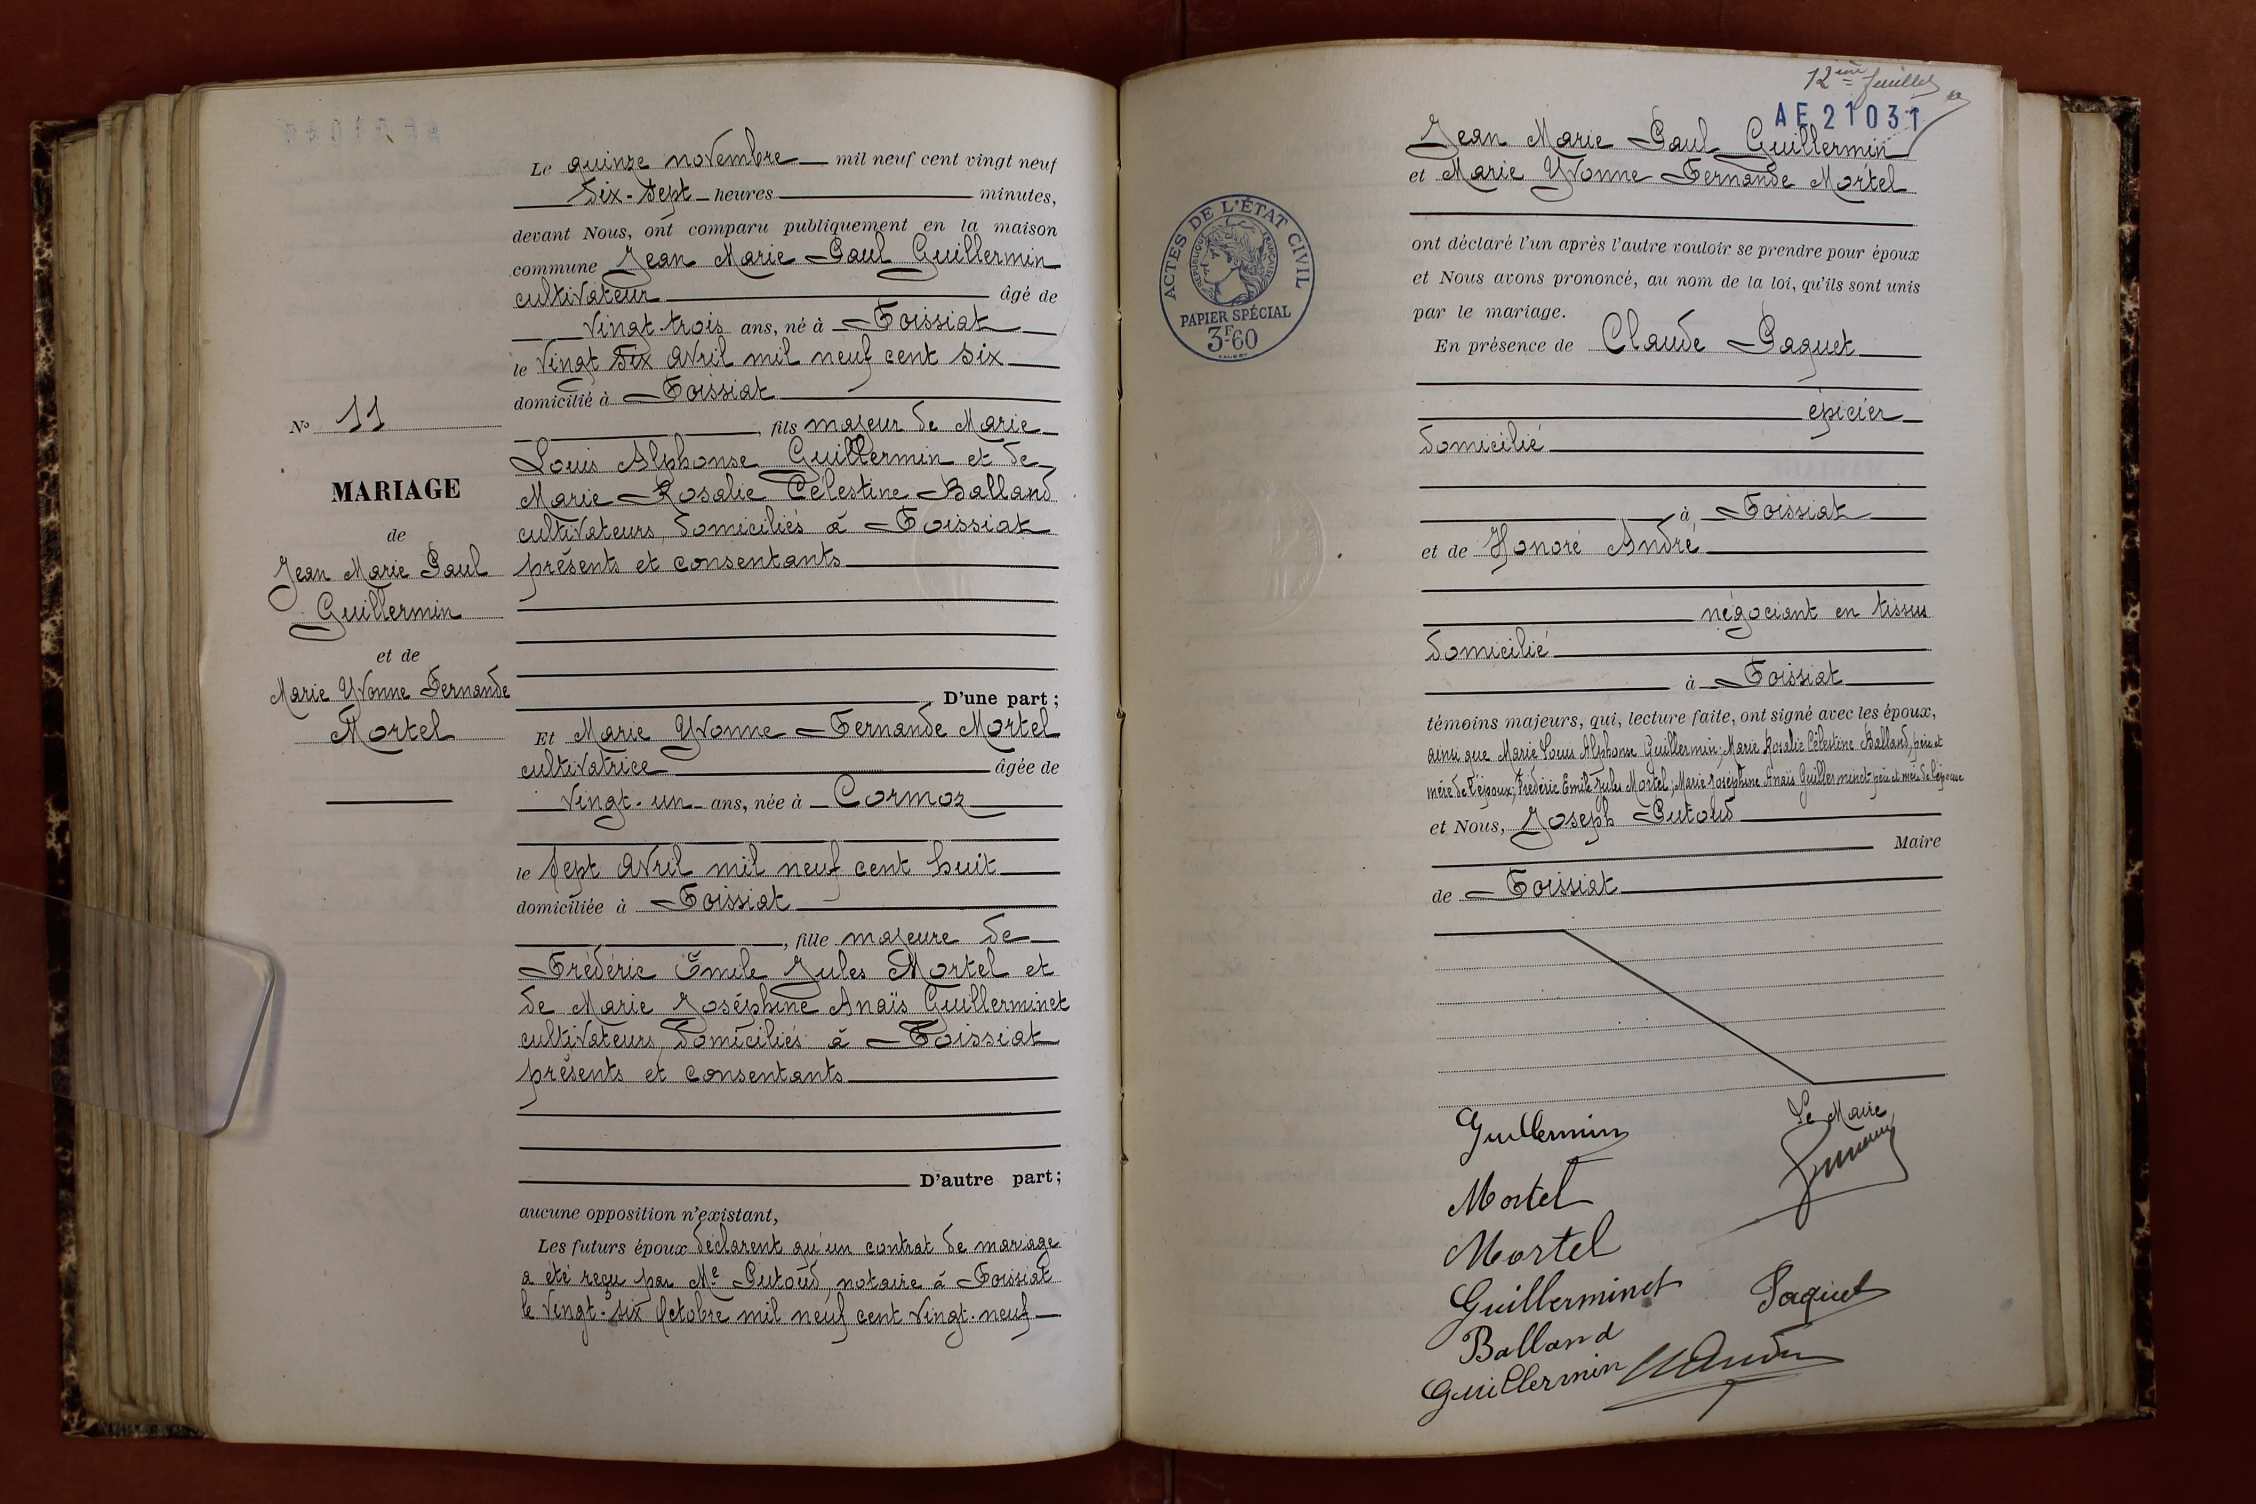 Nº 11
MARIAGE
de
Jean Marie Paul
Guillermin
et de
Marie Yvonne Fernande
Mortel
Le quinze novembre mil neuf cent vingt neuf
dix-sept heures minutes,
devant Nous, ont comparu publiquement en la maison
commune Jean Marie Paul Guillermin
cultivateur âgé de
vingt-trois ans, né à Foissiat
le vingt six avril mil neuf cent six
domicilié à Foissiat
, fils majeur de Marie
Louis Alphonse Guillermin et de
Marie Rosalie Célestine Balland
cultivateurs, domiciliés à Foissiat
présents et consentants
D'une part ;
Et Marie Yvonne Fernande Mortel
cultivatrice âgée de
vingt-un ans, née à Cormoz
le sept avril mil neuf cent huit
domiciliée à Foissiat
, fille majeure de
Frédéric Émile Jules Mortel et
de Marie Joséphine Anaïs Guillerminet
cultivateurs, domiciliés à Foissiat
présents et consentants
D'autre part ;
aucune opposition n'existant,
Les futurs époux déclarent qu'un contrat de mariage
a été reçu par Me Putoud, notaire à Foissiat
le vingt-six Octobre mil neuf cent vingt-neuf
12ème feuillet
AE21031
Jean Marie Paul Guillermin
et Marie Yvonne Fernande Mortel
ACTES DE L'ÉTAT CIVIL
RÉPUBLIQUE FRANÇAISE
PAPIER SPÉCIAL
3F60
ont déclaré l'un après l'autre vouloir se prendre pour époux
et Nous avons prononcé, au nom de la loi, qu'ils sont unis
par le mariage.
En présence de Claude Paquet
épicier
domicilié
à Foissiat
et de Honoré André
négociant en tissus
domicilié
à Foissiat
témoins majeurs, qui, lecture faite, ont signé avec les époux,
ainsi que Marie Louis Alphonse Guillermin; Marie Rosalie Célestine Balland, père et
mère de l'époux; Frédéric Emile Jules Mortel; Marie Joséphine Anaïs Guillerminet père et mère de l'épouse
et Nous, Joseph Putoud
Maire
de Foissiat
Guillermin
Le Maire
Mortel
Mortel
Guillerminet
Paquet
Balland
Guillermin